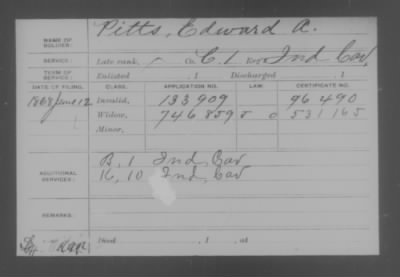 NAME OF SOLDIER: Pitts, Edward A.
SERVICE: Late rank, Co. C. 1 Reg't Ind Cav,
TERM OF SERVICE: Enlisted , 1 Discharged , 1
DATE OF FILING. CLASS. APPLICATION NO. LAW. CERTIFICATE NO.
1868 June 12 Invalid, 133909 96490
Widow, 746859 531165
Minor,
ADDITIONAL SERVICES: B. 1 Ind Cav
K, 10 Ind, Cav
REMARKS:
Died , 1 , at